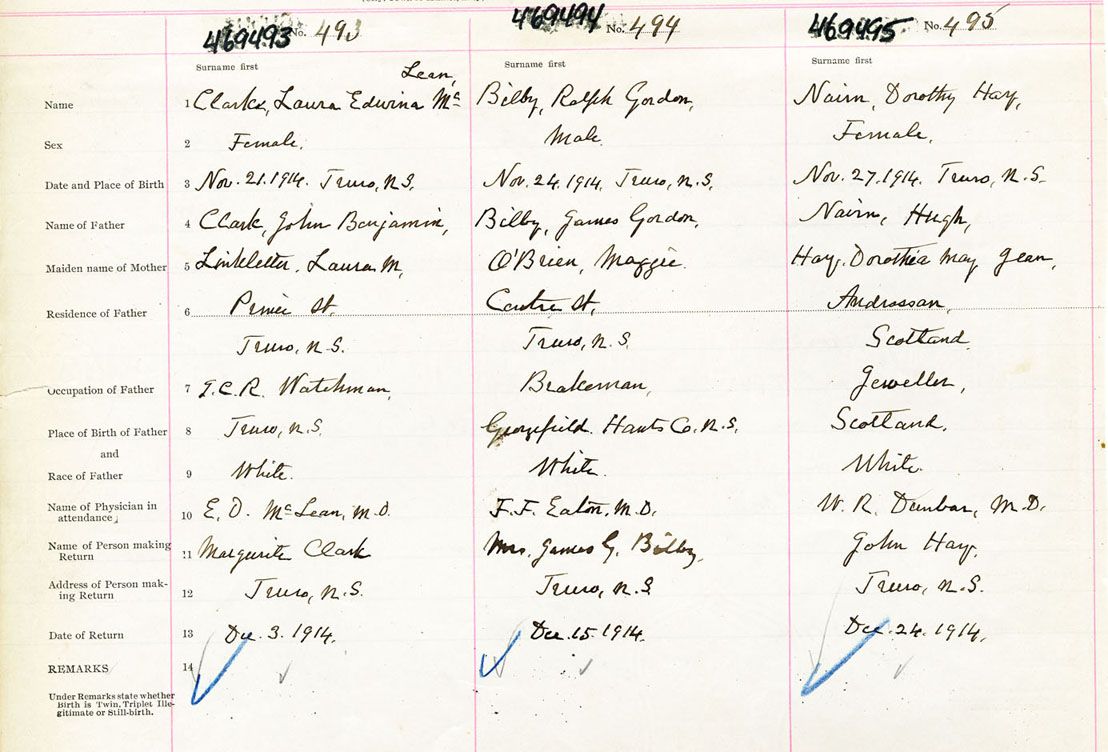 469493 No. 493 469494 No. 494 469495 No. 495
Surname first Surname first Surname first
Lean,
Name 1 Clark, Laura Edwina Mc Bilby, Ralph Gordon, Nairn, Dorothy Hay,
Sex 2 Female. Male. Female.
Date and Place of Birth 3 Nov. 21. 1914. Truro, N.S. Nov. 24. 1914. Truro, N.S. Nov. 27. 1914. Truro, N.S.
Name of Father 4 Clark, John Benjamin, Bilby, James Gordon, Nairn, Hugh,
Maiden name of Mother 5 Linkletter, Laura M, O'Brien, Maggie. Hay, Dorothea May Jean,
Residence of Father 6 Prince St. St, Androssan,
Truro, N.S. Truro, N.S. Scotland.
Occupation of Father 7 I.C.R. Watchman, Brakeman, Jeweller,
Place of Birth of Father 8 Truro, N.S. Hants Co. N.S. Scotland.
and
Race of Father 9 White. White. White.
Name of Physician in
attendance 10 E. D. McLean, M.D. F. F. Eaton, M.D. W. R. Dunbar, M.D.
Name of Person making
Return 11 Marguerite Clark Mrs. James G. Bilby, John Hay.
Address of Person mak-
ing Return 12 Truro, N.S. Truro, N.S. Truro, N.S.
Date of Return 13 Dec. 3. 1914. Dec. 15. 1914. Dec. 24. 1914.
REMARKS 14
Under Remarks state whether
Birth is Twin, Triplet Ille-
gitimate or Still-birth.